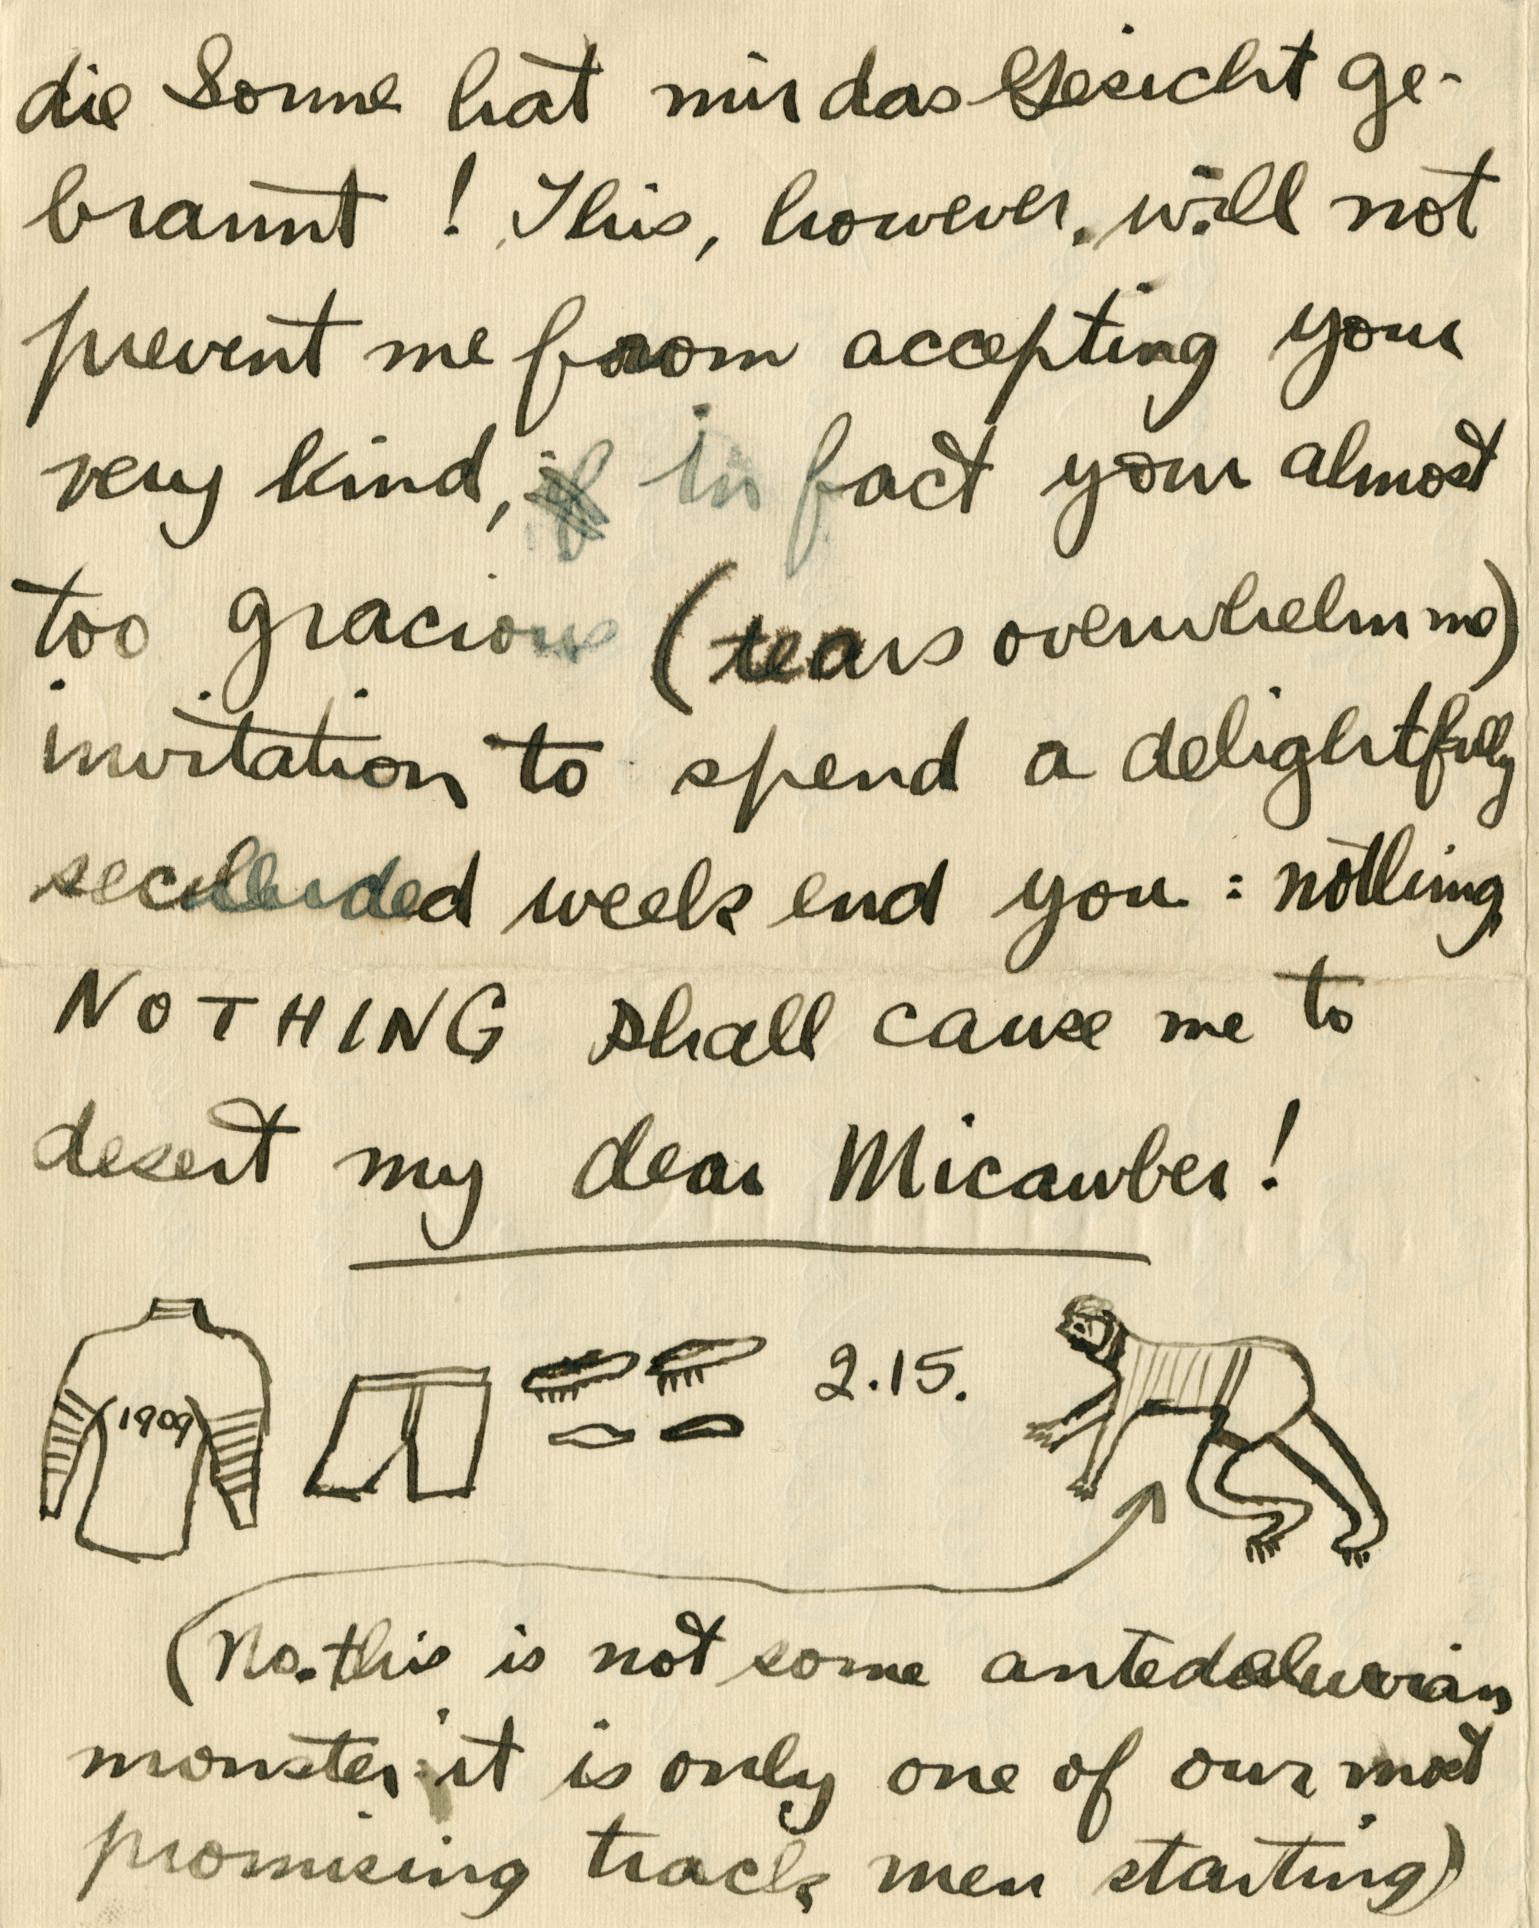 die Sonne hat mir das Gesicht ge-
brannt ! This, however, will not
prevent me from accepting your
very kind, if in fact your almost
too gracious (tears overwhelm me)
invitation to spend a delightfully
secluded week end you : nothing,
NOTHING shall cause me to
desert my dear Micawber!
1909
2.15.
(No. this is not some antedeluvian
monster: it is only one of our most
promising track men starting)